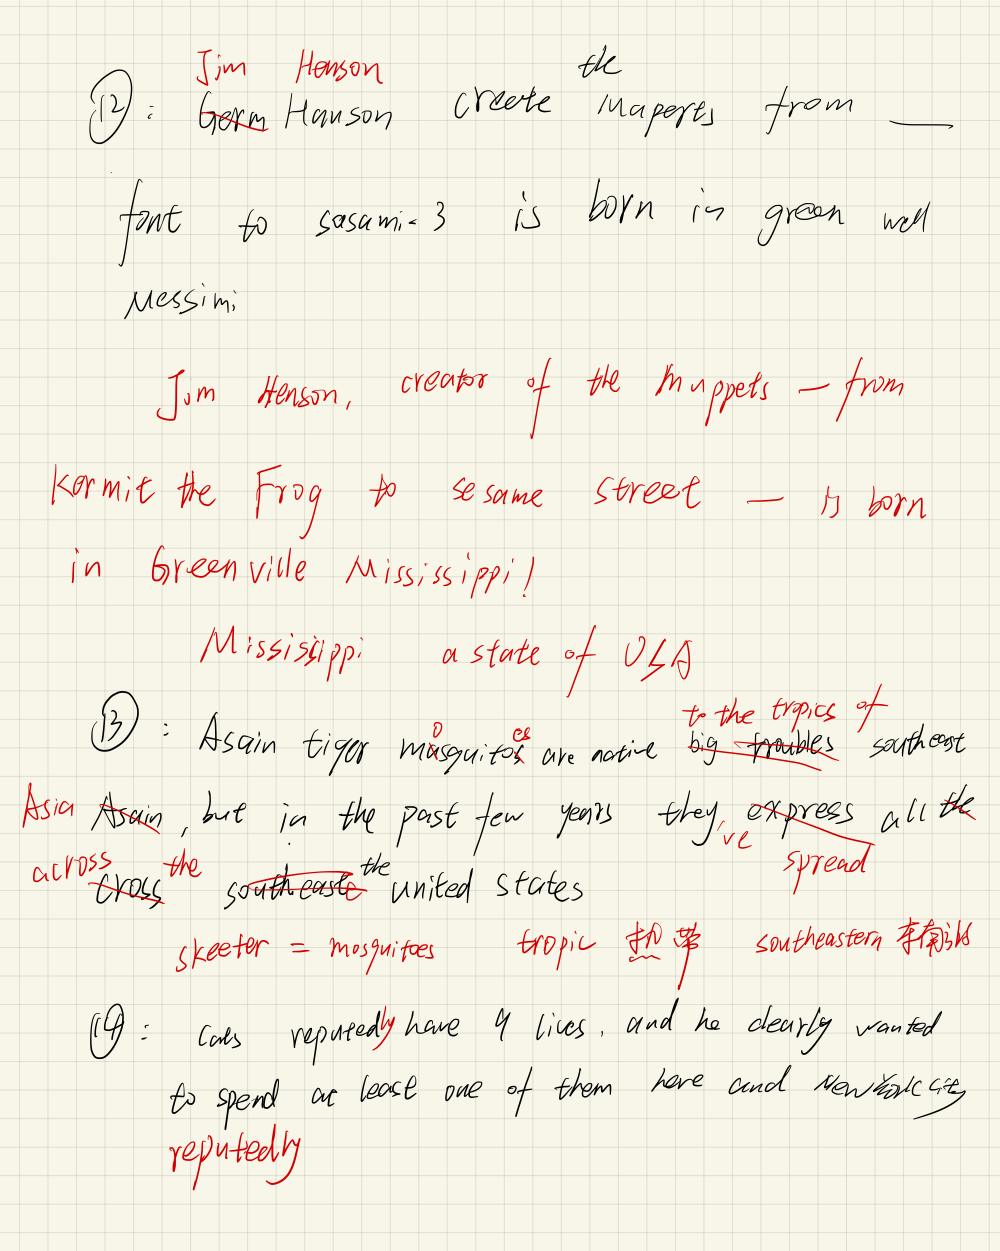 Jim Henson
⑫: Germ Hanson create the muperts from ___
font to sasami-3 is born in green well
Messimi
Jim Henson, creator of the muppets — from
Kermit the Frog to sesame street — is born
in Greenville Mississippi!
Mississippi a state of USA
to the tropics of
⑬: Asain tiger mosquitoes are native big troubles southeast
Asia Asain, but in the past few years they've express all the
spread
across cross the southeast the united states
skeeter = mosquitoes tropic 热带 southeastern 东南部
⑭: cats reputedly have 9 lives, and he clearly wanted
to spend at least one of them here and New York city
reputedly